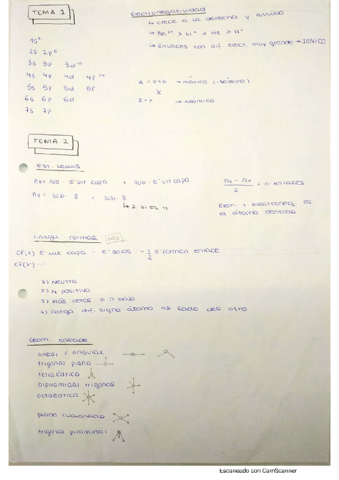 TEMA 1
Electronegatividad
→ crece a la derecha y arriba
→ Be²⁺ > Li⁺ > He > H⁻
→ Enlaces con dif. elect. muy grande → IÓNICO
1s²
2s 2p⁶
3s 3p 3d¹⁰
4s 4p 4d 4f¹⁴
5s 5p 5d 5f
6s 6p 6d
7s 7p
A = p+n → másico
X
Z = p → atómico
TEMA 2
Est. Lewis
+ sub. e⁻ ult capa
= n enlaces
2
Elem - electroneg es
el átomo central
Carga formal
CF(x) e⁻ ult. capa - e⁻ solos - ½ e⁻ forman enlace
CF(x)
1) Neutra
2) N positivo
3) Más ceros o n bajo
4) Carga dif. signo átomo al lado del otro
lineal / angular
trigonal plana
tetraédrica
bipiramidal trigonal
octaédrica
plano cuadrada
trigonal piramidal
Escaneado con CamScanner